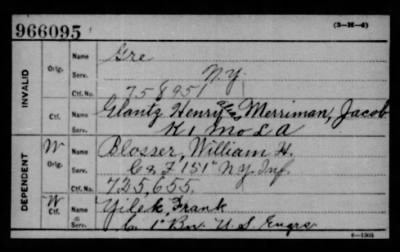 966095
(3-H-6)
INVALID
Orig. Name Gre
Serv. N.Y.
Ctf. No. 758951
Ctf. Name Glantz Henry Merriman, Jacob
Serv. K 1 Mo L A
DEPENDENT
W Orig. Name Blosser, William H.
Serv. Co. F 151" N.Y. Inf.
Ctf. No. 725,655.
W Ctf. Name Yilek, Frank
Serv. 1" U.S. Engrs